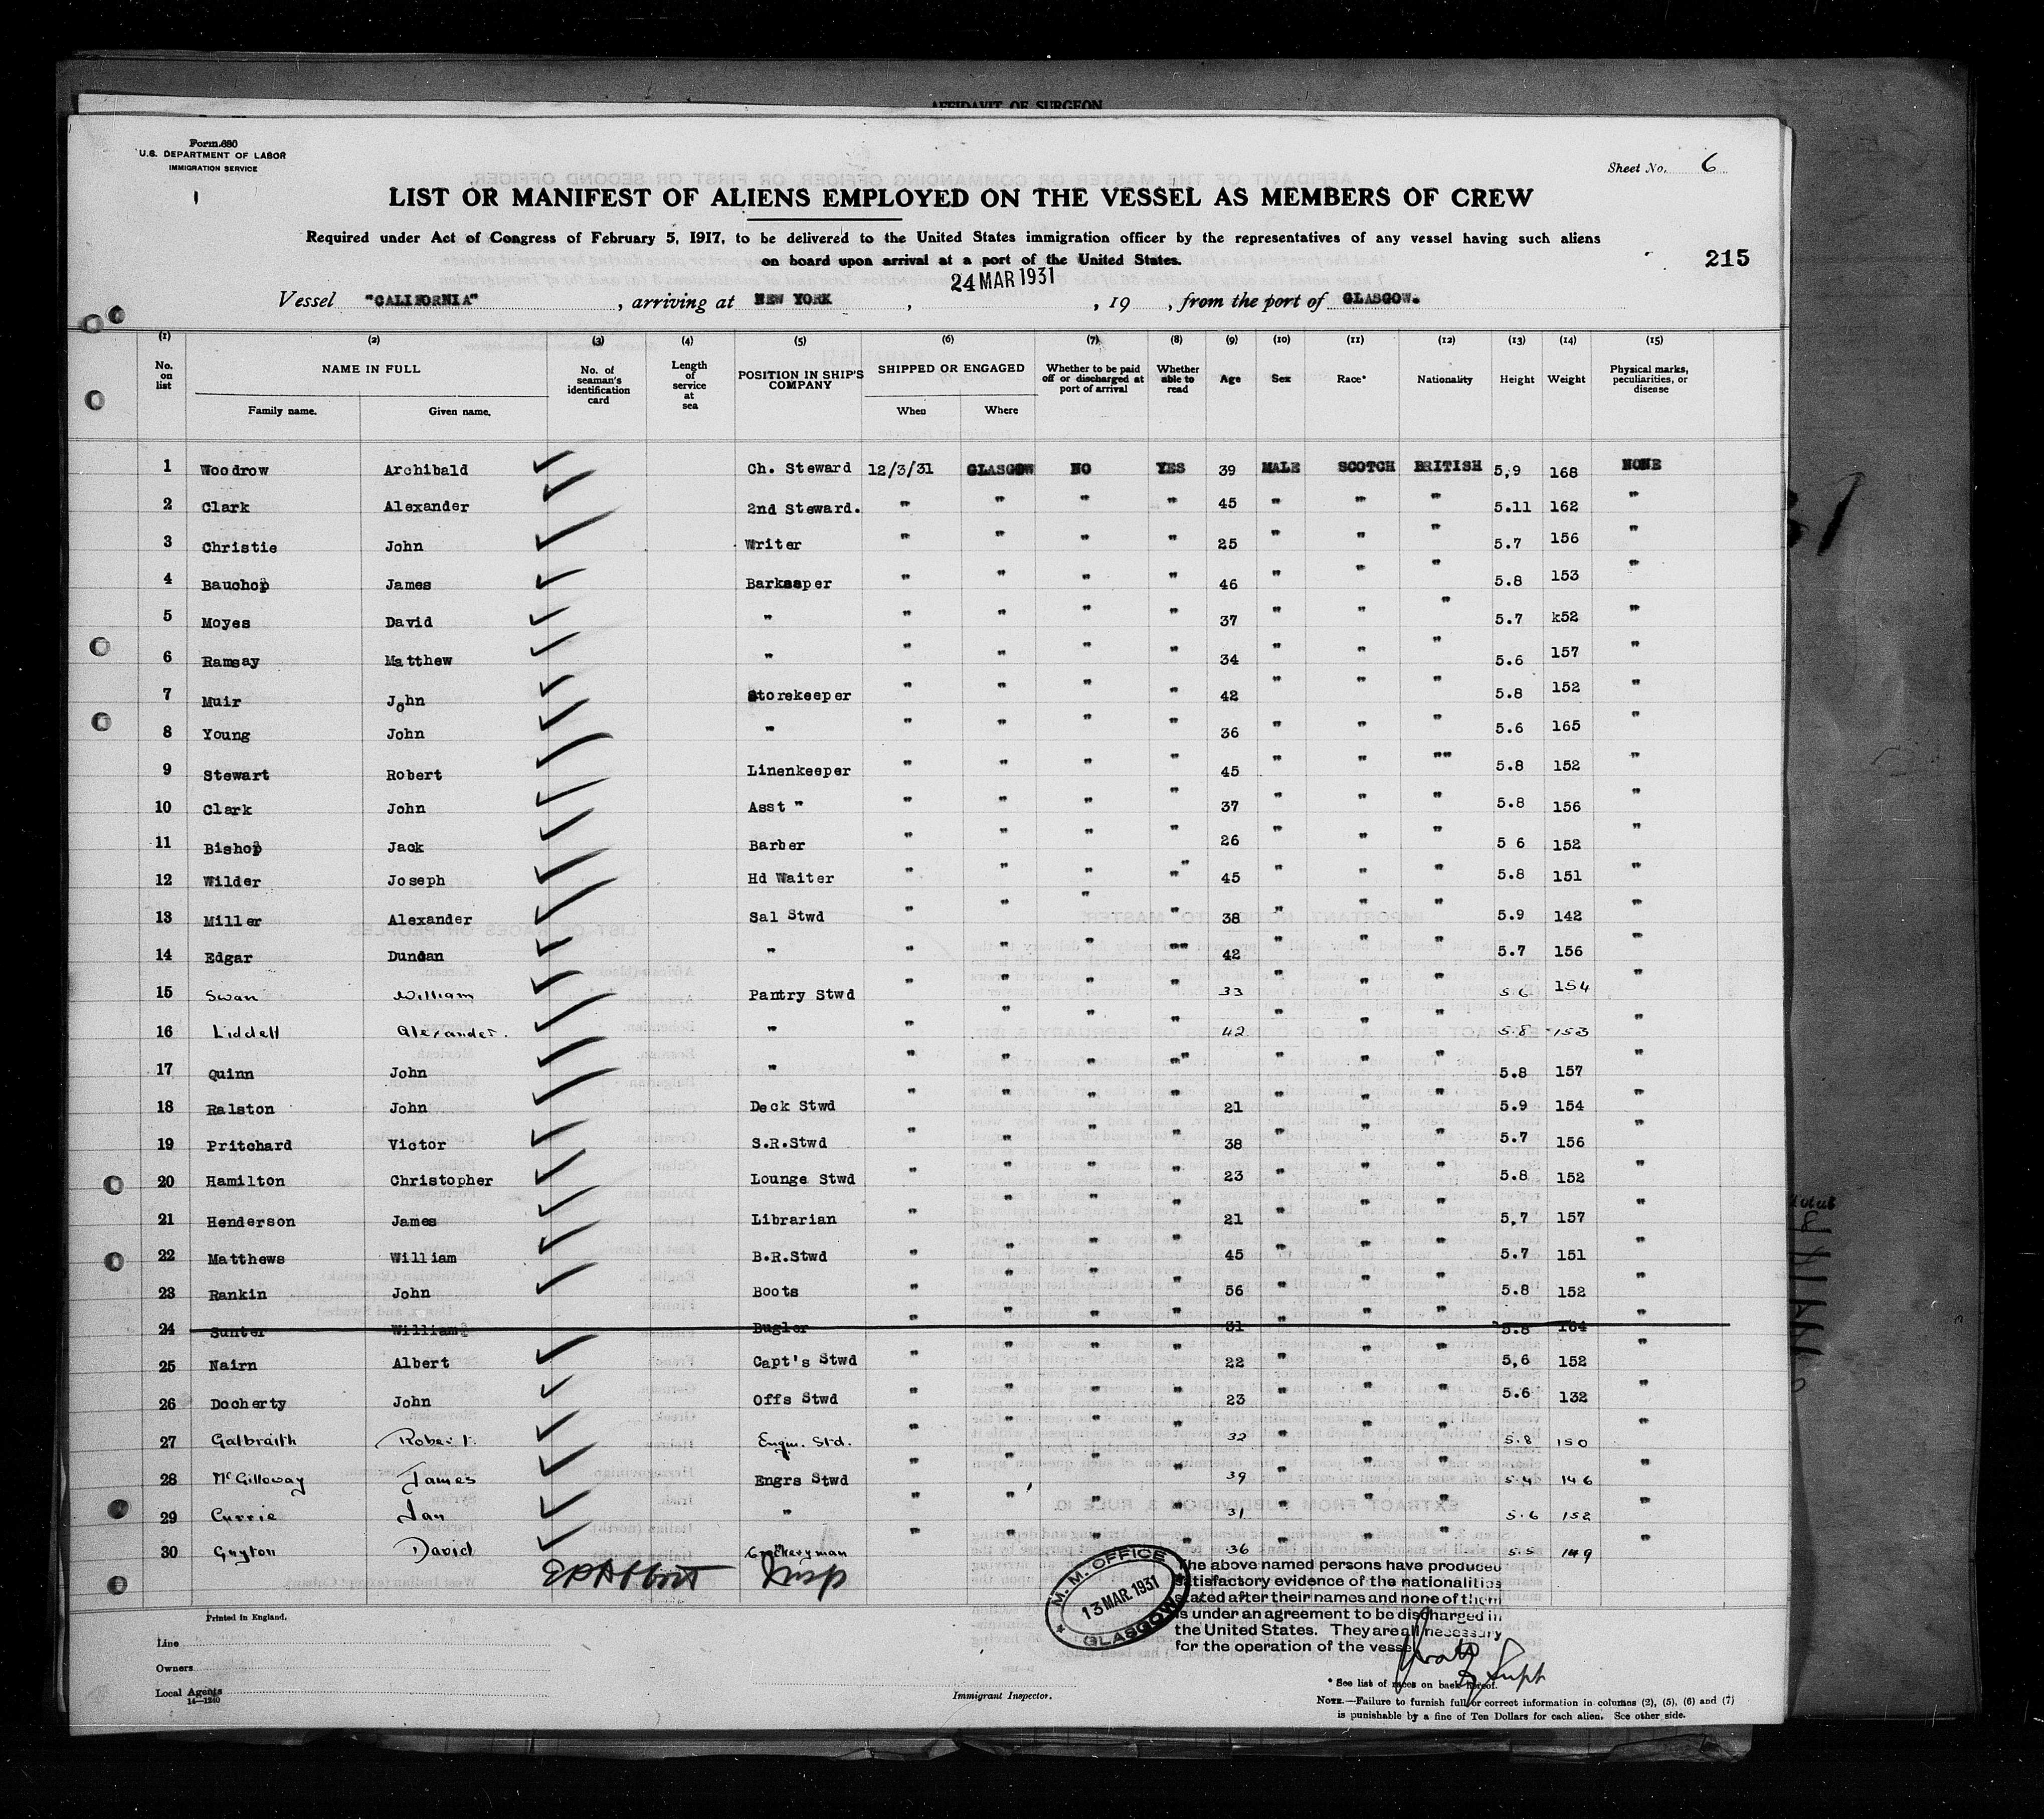 AFFIDAVIT OF SURGEON
Form 680
U.S. DEPARTMENT OF LABOR
IMMIGRATION SERVICE
Sheet No. 6
LIST OR MANIFEST OF ALIENS EMPLOYED ON THE VESSEL AS MEMBERS OF CREW
Required under Act of Congress of February 5, 1917, to be delivered to the United States immigration officer by the representatives of any vessel having such aliens
on board upon arrival at a port of the United States.
215
24 MAR 1931
Vessel "CALIFORNIA", arriving at NEW YORK, , 19 , from the port of GLASGOW.
(1) (2) (3) (4) (5) (6) (7) (8) (9) (10) (11) (12) (13) (14) (15)
No. on list NAME IN FULL Family name. Given name. No. of seaman's identification card Length of service at sea POSITION IN SHIP'S COMPANY SHIPPED OR ENGAGED When Where Whether to be paid off or discharged at port of arrival Whether able to read Age Sex Race* Nationality Height Weight Physical marks, peculiarities, or disease
1 Woodrow Archibald Ch. Steward 12/3/31 GLASGOW NO YES 39 MALE SCOTCH BRITISH 5,9 168 NONE
2 Clark Alexander 2nd Steward. " " " " 45 " " " 5.11 162 "
3 Christie John Writer " " " " 25 " " " 5.7 156 "
4 Bauchop James Barkeeper " " " " 46 " " " 5.8 153 "
5 Moyes David " " " " " 37 " " " 5.7 k52 "
6 Ramsay Matthew " " " " " 34 " " " 5.6 157 "
7 Muir John Storekeeper " " " " 42 " " " 5.8 152 "
8 Young John " " " " " 36 " " " 5.6 165 "
9 Stewart Robert Linenkeeper " " " " 45 " " "" 5.8 152 "
10 Clark John Asst " " " " " 37 " " " 5.8 156 "
11 Bishop Jack Barber " " " " 26 " " " 5 6 152 "
12 Wilder Joseph Hd Waiter " " " "" 45 " " " 5.8 151 "
13 Miller Alexander Sal Stwd " " " " 38 " " " 5.9 142 "
14 Edgar Duncan " " " " "" 42 " " " 5.7 156 "
15 Swan William Pantry Stwd " " " " 33 " " " 5.6 154 "
16 Liddell Alexander. " " " " " 42 " " " 5.8 153 "
17 Quinn John " " " " "" " " " 5.8 157 "
18 Ralston John Deck Stwd " " " " 21 " " " 5.9 154 "
19 Pritchard Victor S.R.Stwd " " " " 38 " " " 5.7 156 "
20 Hamilton Christopher Lounge Stwd " " " " 23 " " " 5.8 152 "
21 Henderson James Librarian " " " " 21 " " " 5,7 157 "
22 Matthews William B.R.Stwd " " " " 45 " " " 5.7 151 "
23 Rankin John Boots " " " " 56 " " " 5.8 152 "
24 Sunter William Bugler " " " 31 " " " 5.8 164 "
25 Nairn Albert Capt's Stwd " " " " 22 " " " 5,6 152 "
26 Docherty John Offs Stwd " " " " 23 " " " 5.6 132 "
27 Galbraith Robert. Engin. Std. " " " " 32 " " " 5.8 150 "
28 McGilloway James Engrs Stwd " " " " 39 " " " 5.4 146 "
29 Currie Ian " " " " " 31 " " " 5.6 152 "
30 Guyton David Crockeryman " " " " 36 " " " 5.5 149 "
Insp
M. M. OFFICE
13 MAR. 1931
GLASGOW
The above named persons have produced
satisfactory evidence of the nationalities
stated after their names and none of them
is under an agreement to be discharged in
the United States. They are all necessary
for the operation of the vessel
Supt
Printed in England.
Line
Owners
Local Agents
14—1240
Immigrant Inspector.
* See list of races on back hereof.
NOTE.—Failure to furnish full or correct information in columns (2), (5), (6) and (7)
is punishable by a fine of Ten Dollars for each alien. See other side.